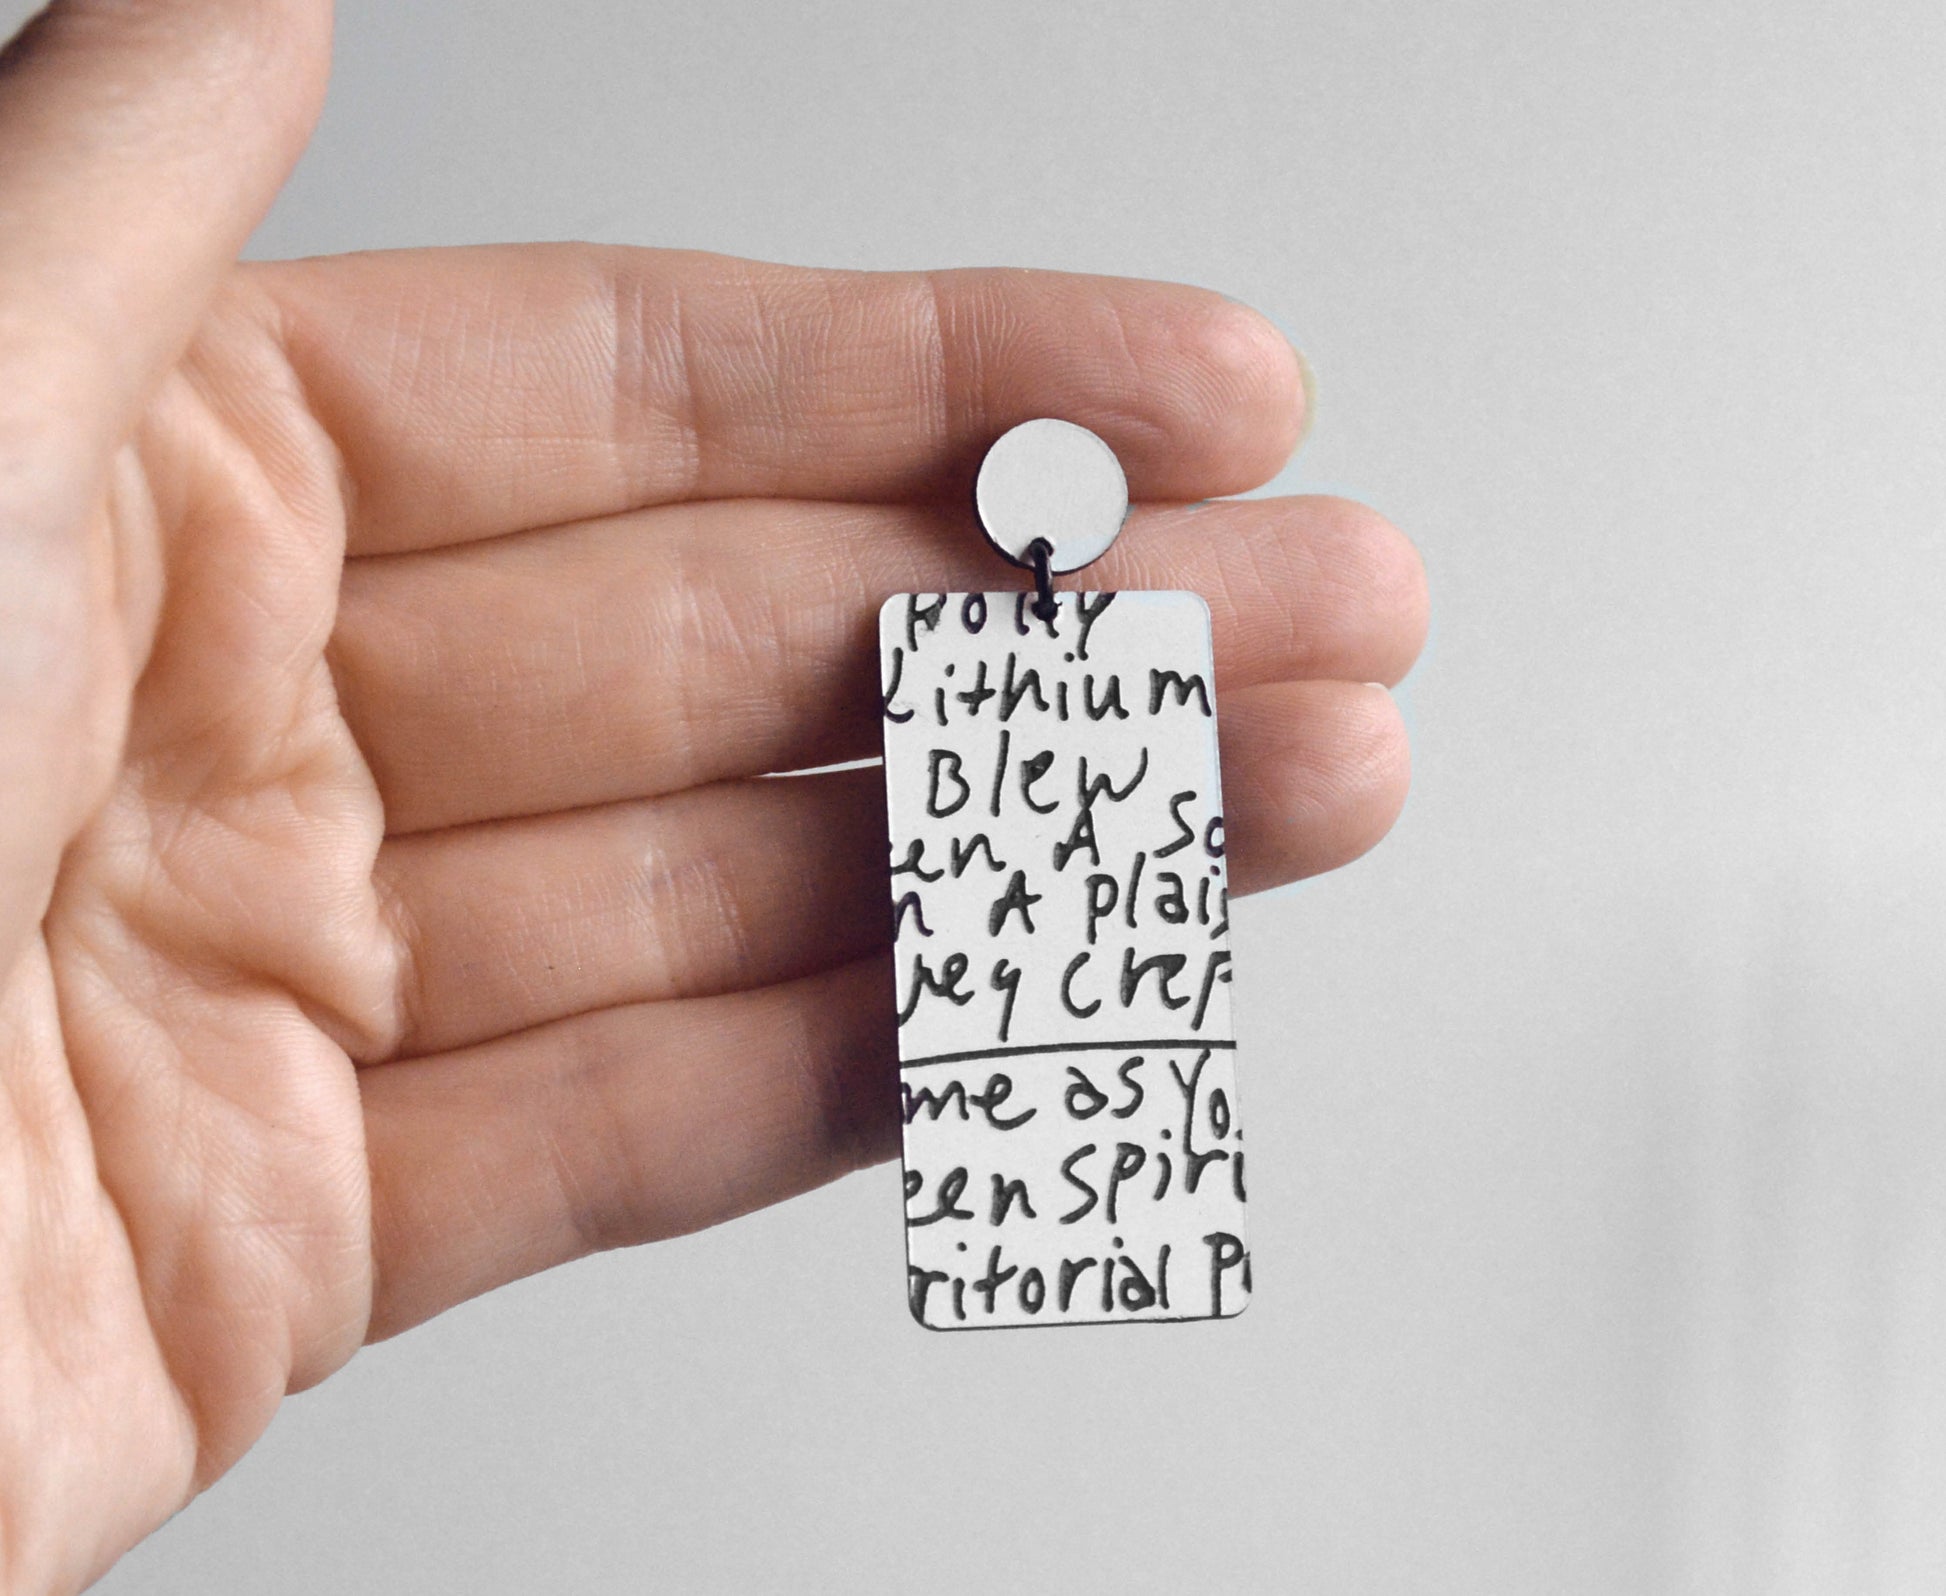 polly
Lithium
Blew
en A So
n A plai
rey crep
me as Yo
een Spiri
ritorial P